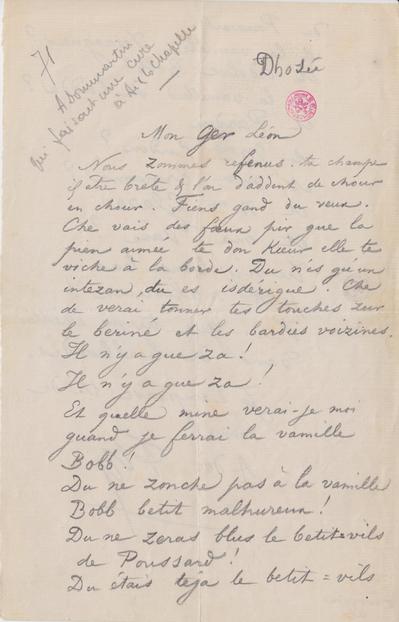 71
A Dommartin
qui faisait une cure
à Aix la Chapelle
Dhosée
Mon Ger Léon
Nous zommes refenus. ta champe
if être brête & l'on d'addent de chour
en chour. Fiens gand du veux.
Che vais des fœux pir que la
pien aimée te don Kieur elle te
viche à la borde. Du n'es qu'un
intezan, du es isdérigue. Che
de verai tonner tes touches zur
le beriné et les bardies voizines.
Il n'y a gue za !
Il n'y a gue za !
Et quelle mine verai-je moi
quand je ferrai la vamille
Bobb !
Du ne zonche pas à la vamille
Bobb betit malhureux !
Du ne zeras blus le betit=vils
de Poussard !
Du étais teja le betit=vils